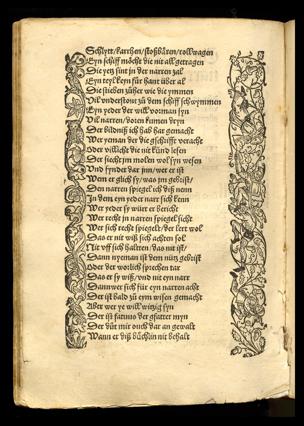 Schlytt/karrhen/stoßbären/rollwagen
Eyn schiff möcht die nit all getragen
Die yetz sint jn der narren zal
Eyn teyl keyn für hant über al
Die stieben züher wie die ymmen
Vil vnderstont zü dem schiff schwymmen
Eyn yeder der wil vorman syn
Vil narren/doren kumen dryn
Der bildniß ich hab har gemacht
Wer yeman der die gschrifft veracht
Oder villicht die nit künd lesen
Der siecht jm molen wol syn wesen
Vnd fyndet dar jnn/wer er ist
Wem er glich sy/was jm gebrist/
Den narren spiegel ich diß nenn
Jn dem eyn yeder narr sich kenn
Wer yeder sy würt er bericht
Wer recht jn narren spiegel sicht
Wer sich recht spiegelt/der lert wol
Das er nit wiß sich achten sol
Nit vff sich haltten/das nit ist/
Dann nyeman ist dem nütz gebrist
Oder der worlich sprechen tar
Das er sy wiß/vnd nit eyn narr
Dann wer sich für eyn narren acht
Der ist bald zü eym wisen gemacht
Aber wer ye wil witzig syn
Der ist fatuus der gfatter myn
Der düt mir ouch dar an gewalt
Wann er diß büchlin nit behalt